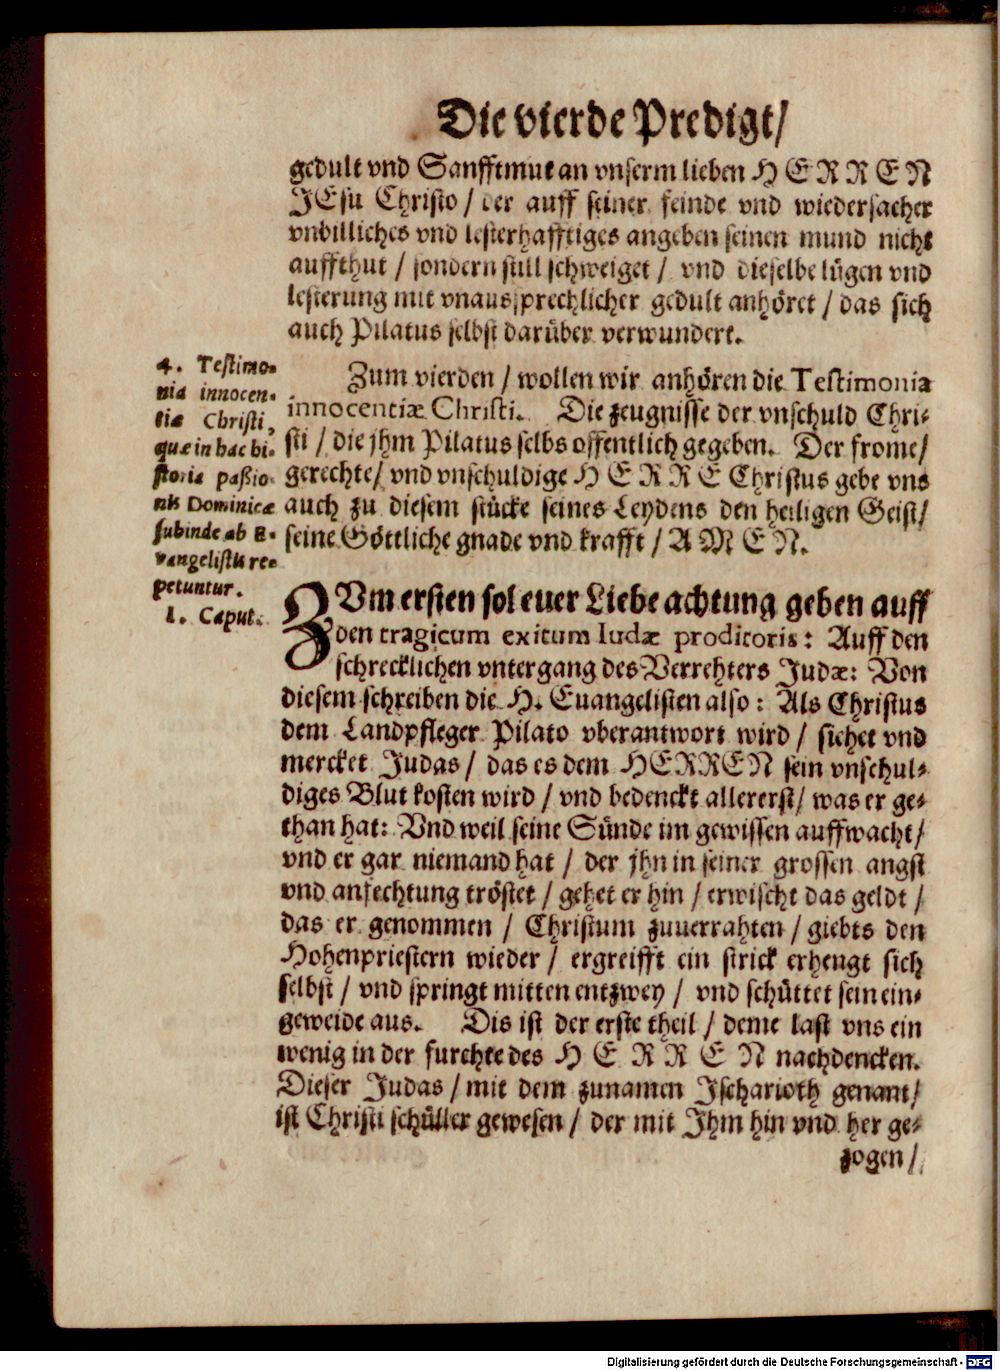 Die vierde Predigt/
gedult vnd Sanfftmut an vnserm lieben HERREN
JEsu Christo / der auff seiner feinde vnd wiedersacher
vnbilliches vnd lesterhafftiges angeben seinen mund nicht
auffthut / sondern still schweiget / vnd dieselbe lügen vnd
lesterung mit vnaussprechlicher gedult anhöret / das sich
auch Pilatus selbst darüber verwundert.
4. Testimo-
nia innocen-
tiæ Christi,
quæ in hac hi-
storia paßio-
nis Dominicæ
subinde ab E-
vangelistis re-
petuntur.
Zum vierden / wollen wir anhören die Testimonia
innocentiæ Christi. Die zeugnisse der vnschuld Chri-
sti / die jhm Pilatus selbs offentlich gegeben. Der frome/
gerechte/ vnd vnschuldige HERRE Christus gebe vns
auch zu diesem stücke seines Leydens den heiligen Geist/
seine Göttliche gnade vnd krafft / AMEN.
1. Caput.
ZVm ersten sol euer Liebe achtung geben auff
den tragicum exitum Iudæ proditoris: Auff den
schrecklichen vntergang des Verrehters Judæ: Von
diesem schreiben die H. Euangelisten also: Als Christus
dem Landpfleger Pilato vberantwort wird / sichet vnd
mercket Judas / das es dem HERREN sein vnschul-
diges Blut kosten wird / vnd bedenckt allererst/ was er ge-
than hat: Vnd weil seine Sünde im gewissen auffwacht/
vnd er gar niemand hat / der jhn in seiner grossen angst
vnd anfechtung tröstet / gehet er hin / erwischt das geldt /
das er genommen / Christum zuuerrahten / giebts den
Hohenpriestern wieder / ergreifft ein strick erhengt sich
selbst / vnd springt mitten entzwey / vnd schüttet sein ein-
geweide aus. Dis ist der erste theil / deme last vns ein
wenig in der furchte des HERREN nachdencken.
Dieser Judas / mit dem zunamen Jscharioth genant/
ist Christi schüller gewesen / der mit Jhm hin vnd her ge-
zogen /
Digitalisierung gefördert durch die Deutsche Forschungsgemeinschaft - DFG